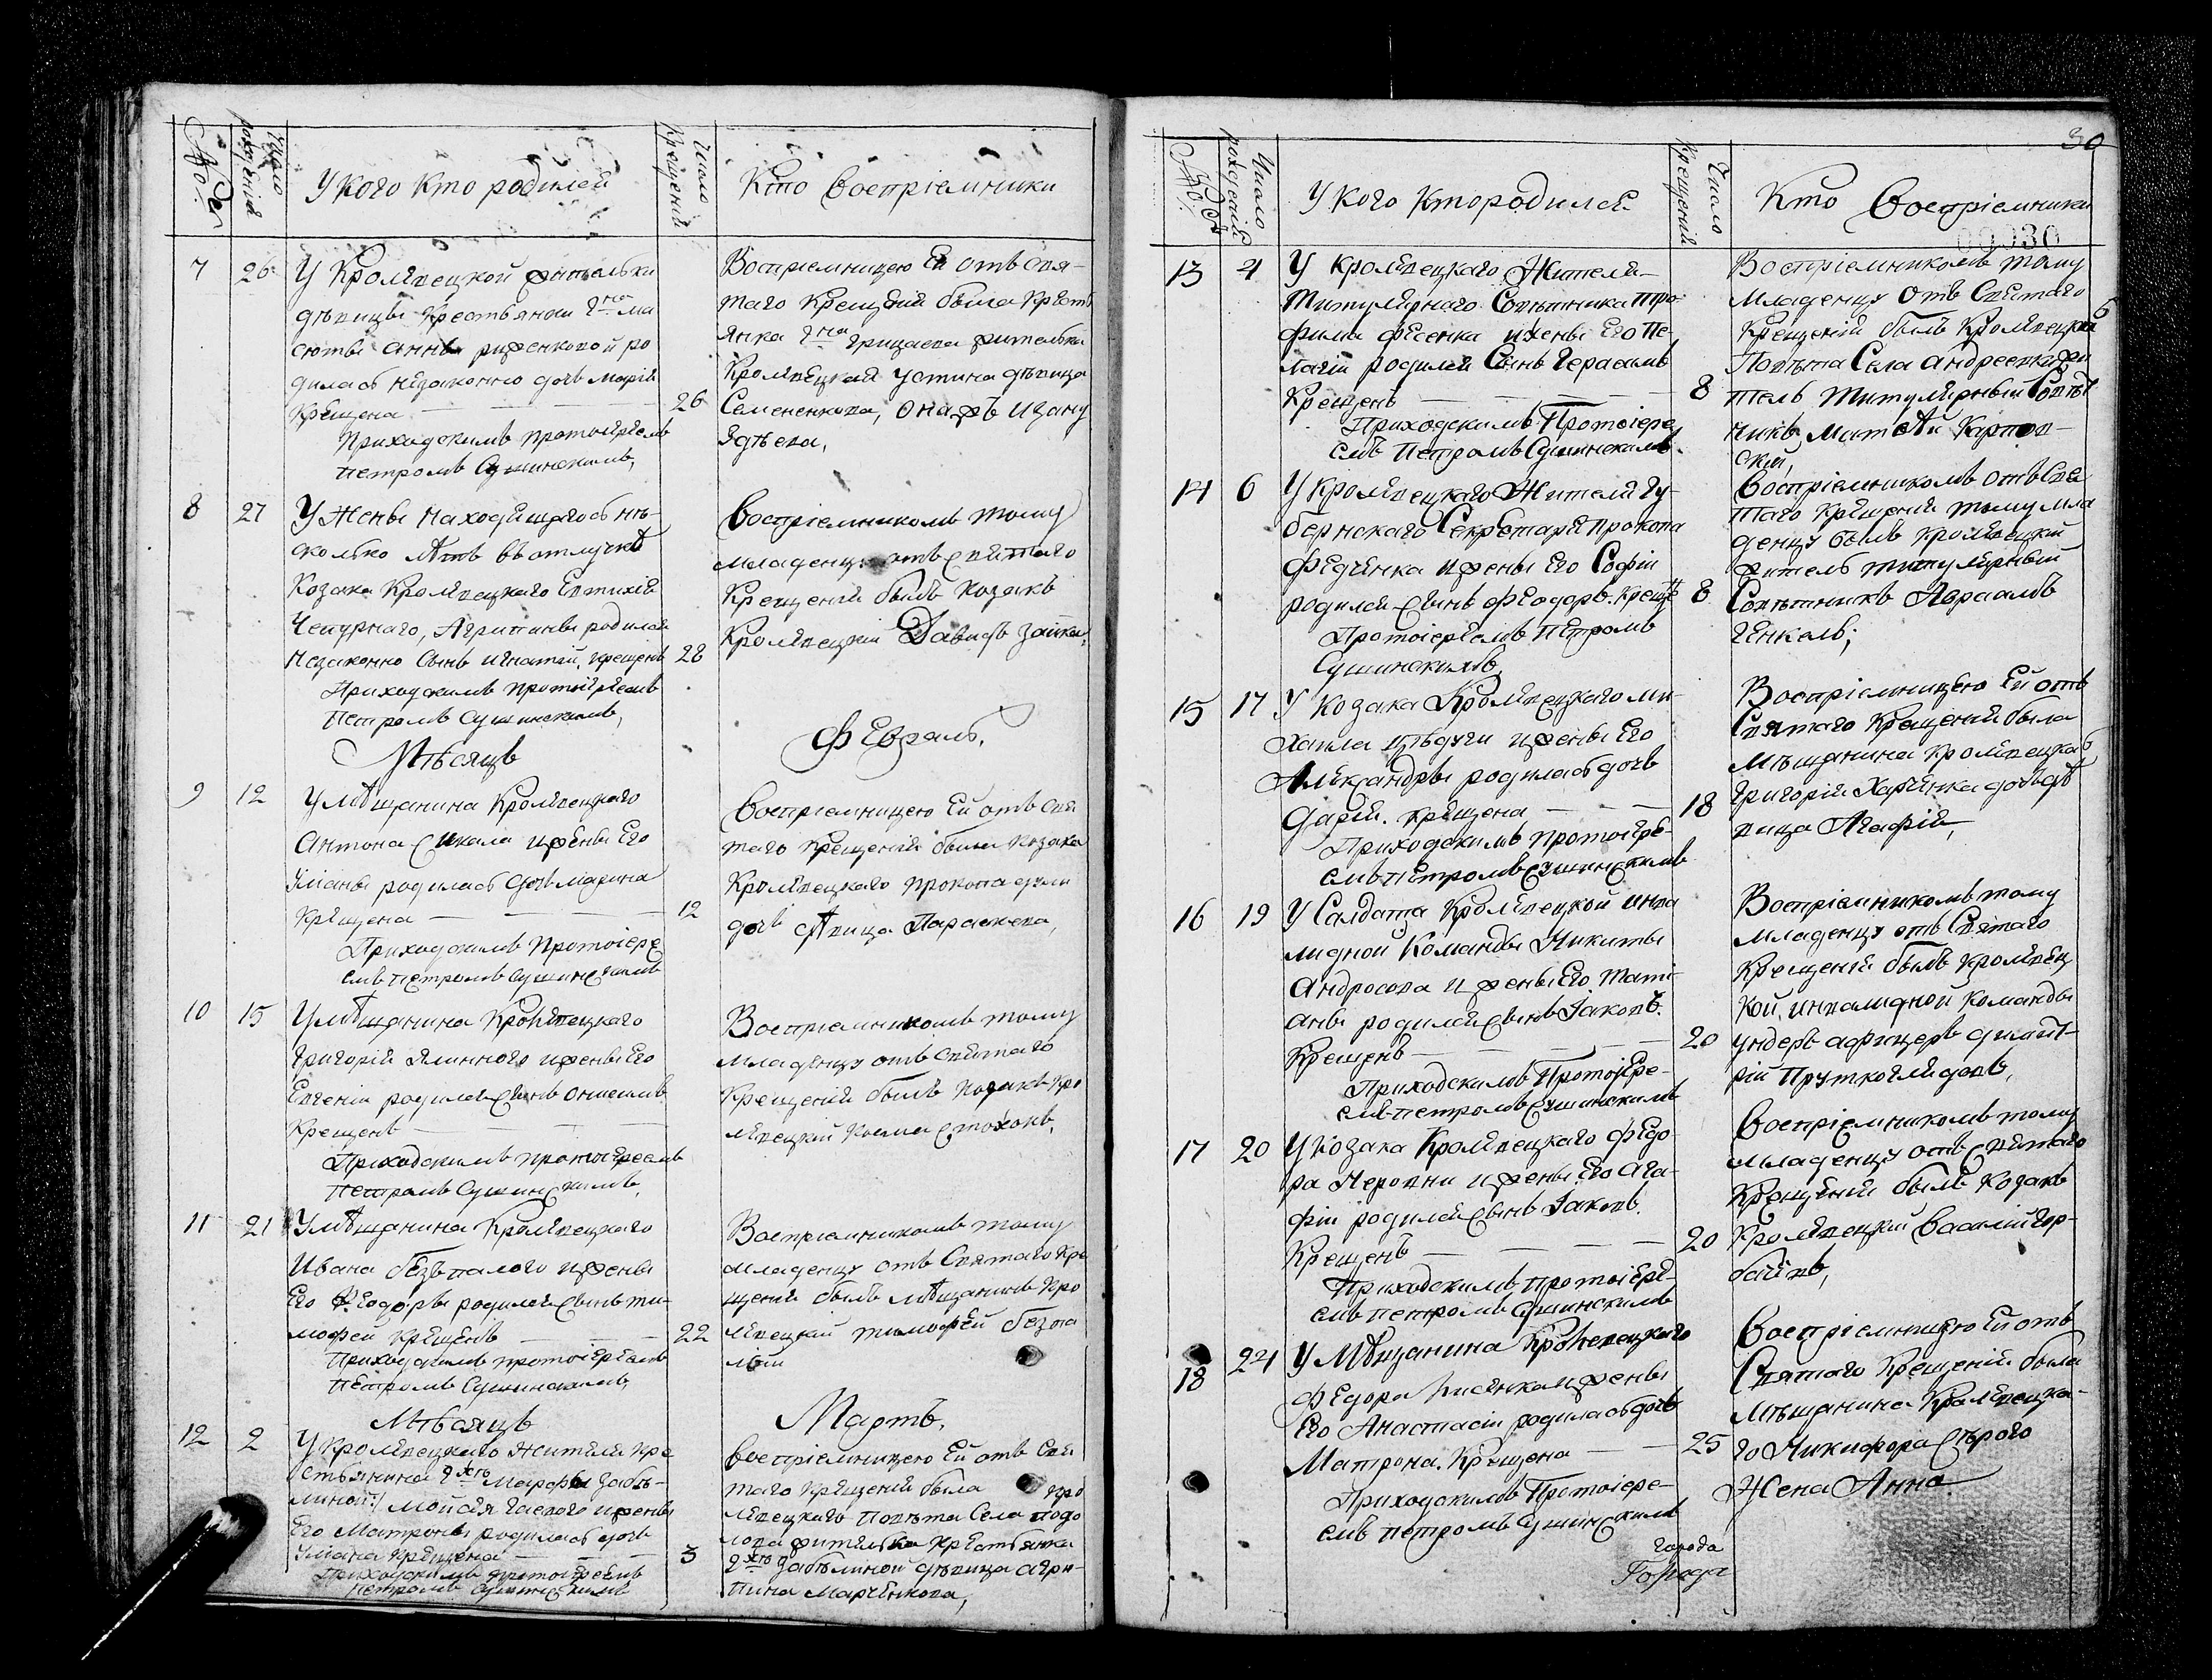 №
Число рожденій
У Кого Кто родился
Число Крещеній
Кто Воспріемники
7 26
У Кролевецкой жительки
дѣвицы Крестьянки Гна
Анны
родилась незаконно дочь Марія
Крещена — — — 26
Приходскимъ протоіереемъ
Петромъ Сушинскимъ,
Воспріемницею Ей отъ Свя-
таго Крещенія была Крестья
янка Гна Грицаева жителька
Кролевецкая Устина дѣвица
Семененкова,
8 27
У Жены находящагось нѣ-
сколько лѣтъ въ отлучкѣ
Козака Кролевецкаго Евтихія
Чепурнаго, Агрипины родился
незаконно Сынъ Игнатій, крещенъ 28
Приходскимъ протоіереемъ
Петромъ Сушинскимъ,
Воспріемникомъ тому
младенцу отъ святаго
Крещенія былъ Козакъ
Кролевецкій Давидъ Заика,
Мѣсяцъ
Февраль.
9 12
У мѣщанина Кролевецкаго
Антона и жены Его
Уліаны родилась дочь Марина
Крещена — — — 12
Приходскимъ Протоіере
емъ Петромъ Сушинскимъ
Воспріемницею Ей отъ Свя
таго Крещенія была Козака
Кролевецкаго Прокопа
дочь дѣвица Параскева,
10 15
У мѣщанина Кролевецкаго
Григорія и жены Его
Евгеніи родился Сынъ Онисимъ
Крещенъ — — —
Приходскимъ протоіереемъ
Петромъ Сушинскимъ,
Воспріемникомъ тому
младенцу отъ святаго
Крещенія былъ Козакъ Кро
левецкій Косма
11 21
У мѣщанина Кролевецкаго
Ивана Безпалого и жены
Его Феодоры родился Сынъ Ти-
мофей Крещенъ — — 22
Приходскимъ протоіереемъ
Петромъ Сушинскимъ,
Воспріемникомъ тому
младенцу отъ Святаго Кре
щенія былъ мѣщанинъ Кро
левецкій Тимофей Безпа
лый
Мѣсяцъ
Мартъ.
12 2
У Кролевецкаго жителя Кре
стьянина Марфы Забѣ-
линой/ Мойсея и жены
Его Матроны родилась дочь
Уліана Крещена — — 3
Приходскимъ протоіереемъ
Петромъ Сушинскимъ
Воспріемницею Ей отъ Свя
таго Крещенія была Кро
левецкаго Повѣта Села Подо
лова жителька Крестьянка
Забѣлиной дѣвица Агри-
пина Марченкова,
30
00030
№
Число рожденій
У Кого Кто родился
Число Крещеній
Кто Воспріемники
13 4
У Кролевецкаго Жителя
Титулярнаго Совѣтника Тро-
фима Фесенка и жены Его Пе-
лагіи родился Сынъ Герасимъ
Крещенъ — — — 8
Приходскимъ Протоіере
емъ Петромъ Сушинскимъ.
Воспріемникомъ тому
младенцу отъ Святаго
Крещенія былъ Кролевецкаго
Повѣта Села Андреевки жи
тель Титулярный Совѣт
никъ Матвѣй Карпов-
скій,
14 6
У Кролевецкаго Жителя Гу-
бернскаго Секретаря Прокопа
Федченка и жены Его Софіи
родился Сынъ Феодоръ. Крещенъ 8
Протоіереемъ Петромъ
Сушинскимъ,
Воспріемникомъ отъ Свя
таго Крещенія тому мла
денцу былъ Кролевецкій
житель титулярный
Совѣтникъ Авраамъ
Генкель;
15 17
У Козака Кролевецкаго Ми-
хаила и жены Его
Александры родилась дочь
Дарія. Крещена — — 18
Приходскимъ протоіере-
емъ Петромъ Сушинскимъ
Воспріемницею Ей отъ
Святаго Крещенія была
Мѣщанина Кролевецкаго
Григорія Харченка дочь дѣ
вица Агафія,
16 19
У Салдата Кролевецкой инва
лидной Команды Никиты
Андросова и жены Его Тати-
аны родился Сынъ Іаковъ.
Крещенъ — — — 20
Приходскимъ Протоіере-
емъ Петромъ Сушинскимъ
Воспріемникомъ тому
младенцу отъ Святаго
Крещенія былъ Кролевец
кой инвалидной команды
ундеръ афицеръ Димит-
рій
17 20
У Козака Кролевецкаго Федо
ра и жены Его Ага-
фіи родился Сынъ Іаковъ.
Крещенъ — — — 20
Приходскимъ протоіере-
емъ Петромъ Сушинскимъ
Воспріемникомъ тому
младенцу отъ Святаго
Крещенія былъ Козакъ
Кролевецкій Василій Гор-
18 24
У Мѣщанина Кролевецкаго
Федора и жены
Его Анастасіи родилась дочь
Матрона. Крещена — — 25
Приходскимъ Протоіере-
емъ Петромъ Сушинскимъ
Воспріемницею Ей отъ
Святаго Крещенія была
Мѣщанина Кролевецка-
го Никифора Сѣрого
Жена Анна.
Города
Города